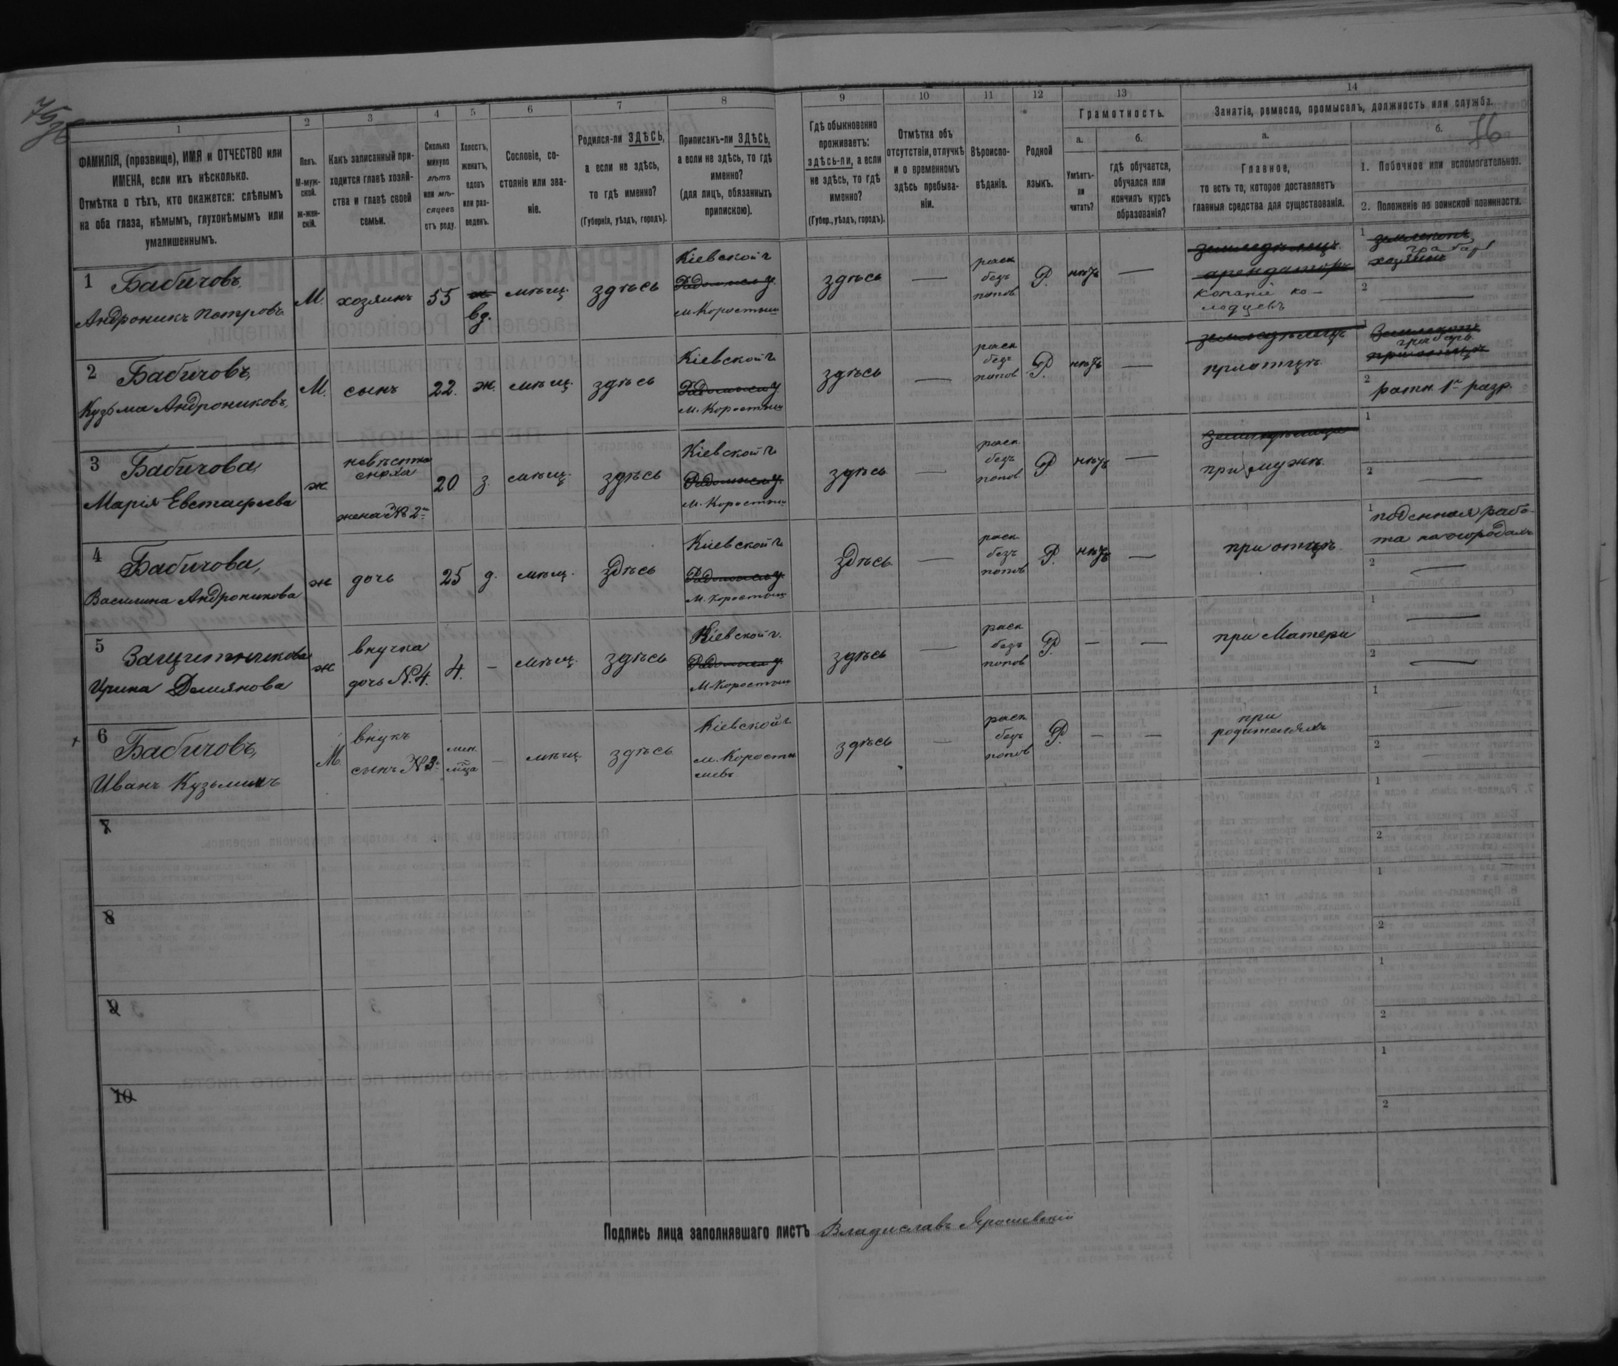 1 2 3 4 5 6 7 8 9 10 11 12 13 14
ФАМИЛІЯ, (прозвище), ИМЯ и ОТЧЕСТВО или
ИМЕНА, если ихъ нѣсколько.
Отмѣтка о тѣхъ, кто окажется: слѣпымъ
на оба глаза, нѣмымъ, глухонѣмымъ или
умалишеннымъ.
Полъ.
М-муж-
ской.
ж-жен-
скій.
Какъ записанный при-
ходится главѣ хозяй-
ства и главѣ своей
семьи.
Сколько
минуло
лѣтъ
или мѣ-
сяцевъ
отъ роду.
Холостъ,
женатъ,
вдовъ
или раз-
веденъ.
Сословіе, со-
стояніе или зва-
ніе.
Родился-ли ЗДѢСЬ,
а если не здѣсь,
то гдѣ именно?
(Губернія, уѣздъ, городъ).
Приписанъ-ли ЗДѢСЬ,
а если не здѣсь, то гдѣ
именно?
(для лицъ, обязанныхъ
припискою).
Гдѣ обыкновенно
проживаетъ:
здѣсь-ли, а если
не здѣсь, то гдѣ
именно?
(Губер., уѣздъ, городъ).
Отмѣтка объ
отсутствіи, отлучкѣ
и о временномъ
здѣсь пребыва-
ніи.
Вѣроиспо-
вѣданіе.
Родной
языкъ.
Грамотность.
а.
Умѣетъ-
ли
читать?
б.
гдѣ обучается,
обучался или
кончилъ курсъ
образованія?
Занятіе, ремесло, промыселъ, должность или служба.
а.
Главное,
то есть то, которое доставляетъ
главныя средства для существованія.
б.
1. Побочное или вспомогательное.
2. Положеніе по воинской повинности.
76
1
Бабичовъ
Андроникъ Петровъ
М.
хозяинъ
55
ж
вд.
мѣщ.
здѣсь
Кіевской г
м. Коростыш
здѣсь
раск
безъ
попов
Р.
нѣтъ
земледѣлецъ
арендаторъ
Копаніе ко-
лодцевъ
1
хозяинъ
2
2
Бабичовъ,
Кузьма Андрониковъ,
М.
сынъ
22.
ж.
мѣщ.
здѣсь
Кіевской г
м. Коростыш
здѣсь
раск
безъ
попов
Р.
нѣтъ
земледѣлецъ
при отцѣ
1
грабарь
2
ратн 1го разр.
3
Бабичова,
Марія Евстафіева
ж
невѣстка
сноха
жена № 2го
20
з.
мѣщ.
здѣсь
Кіевской г
м. Коростыш
здѣсь
раск
безъ
попов
Р
нѣтъ
при мужѣ
1
2
4
Бабичова,
Василина Андроникова
ж
дочь
25
д.
мѣщ.
здѣсь
Кіевской г
м. Коростыш
здѣсь
раск
безъ
попов
Р.
нѣтъ
при отцѣ
1
поденная рабо-
та на огородахъ
2
5
Защитникова
Ирина Демянова
ж
внучка
дочь №4.
4.
мѣщ.
здѣсь
Кіевской г.
М. Коростыш
здѣсь
раск
безъ
попов
Р.
при Матери
1
2
6
Бабичовъ,
Иванъ Кузьминъ
М
внукъ
сынъ № 3.
мѣщ.
здѣсь
Кіевской г
м. Корости
шевъ
здѣсь
раск
безъ
попов
Р.
при
родителяхъ
1
2
7
1
2
8
1
2
9
1
2
10
1
2
Подпись лица заполнявшаго листъ Владиславъ Ярошевскій